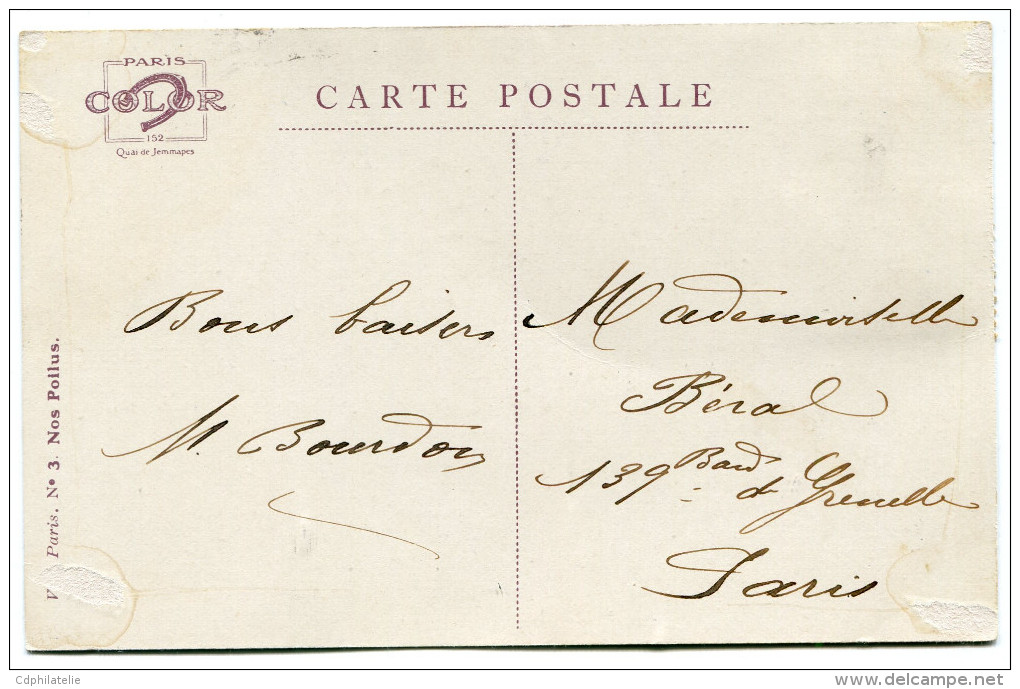 PARIS
COLOR
152
Quai de Jemmapes
CARTE POSTALE
Bons baisers
M. Bourdon
Mademoiselle
Béral
139 Bard de Grenelle
Paris
Paris, N° 3. Nos Poilus.
Cdphilatelie
delcampe.net